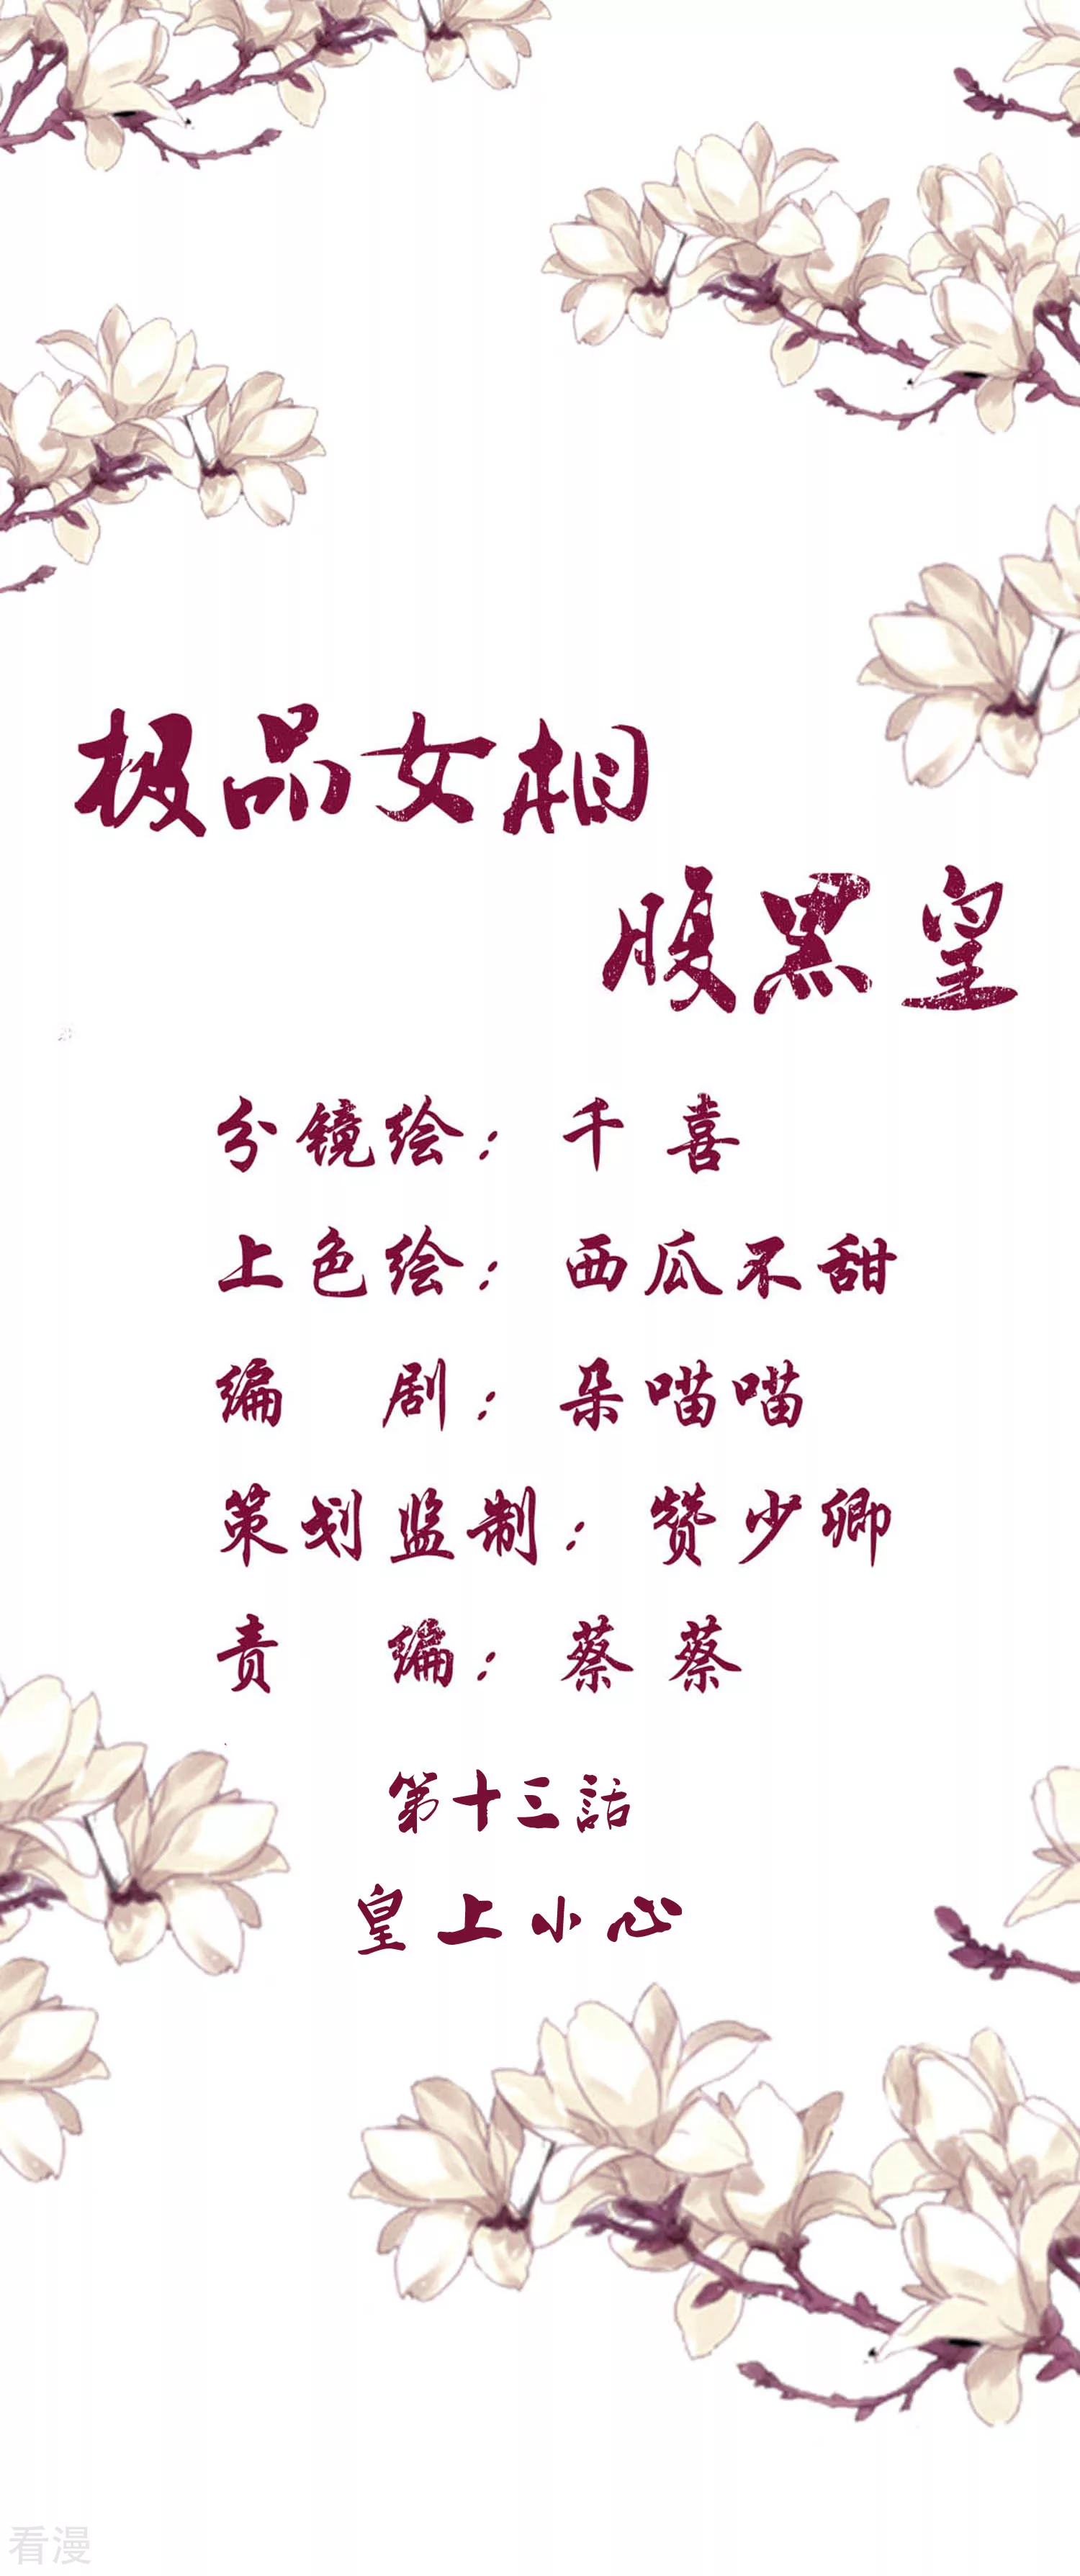 极品女相
腹黑皇
分镜绘：千喜
上色绘：西瓜不甜
编 剧：朵喵喵
策划监制：赞少卿
责 编：蔡蔡
第十三話
皇上小心
看漫